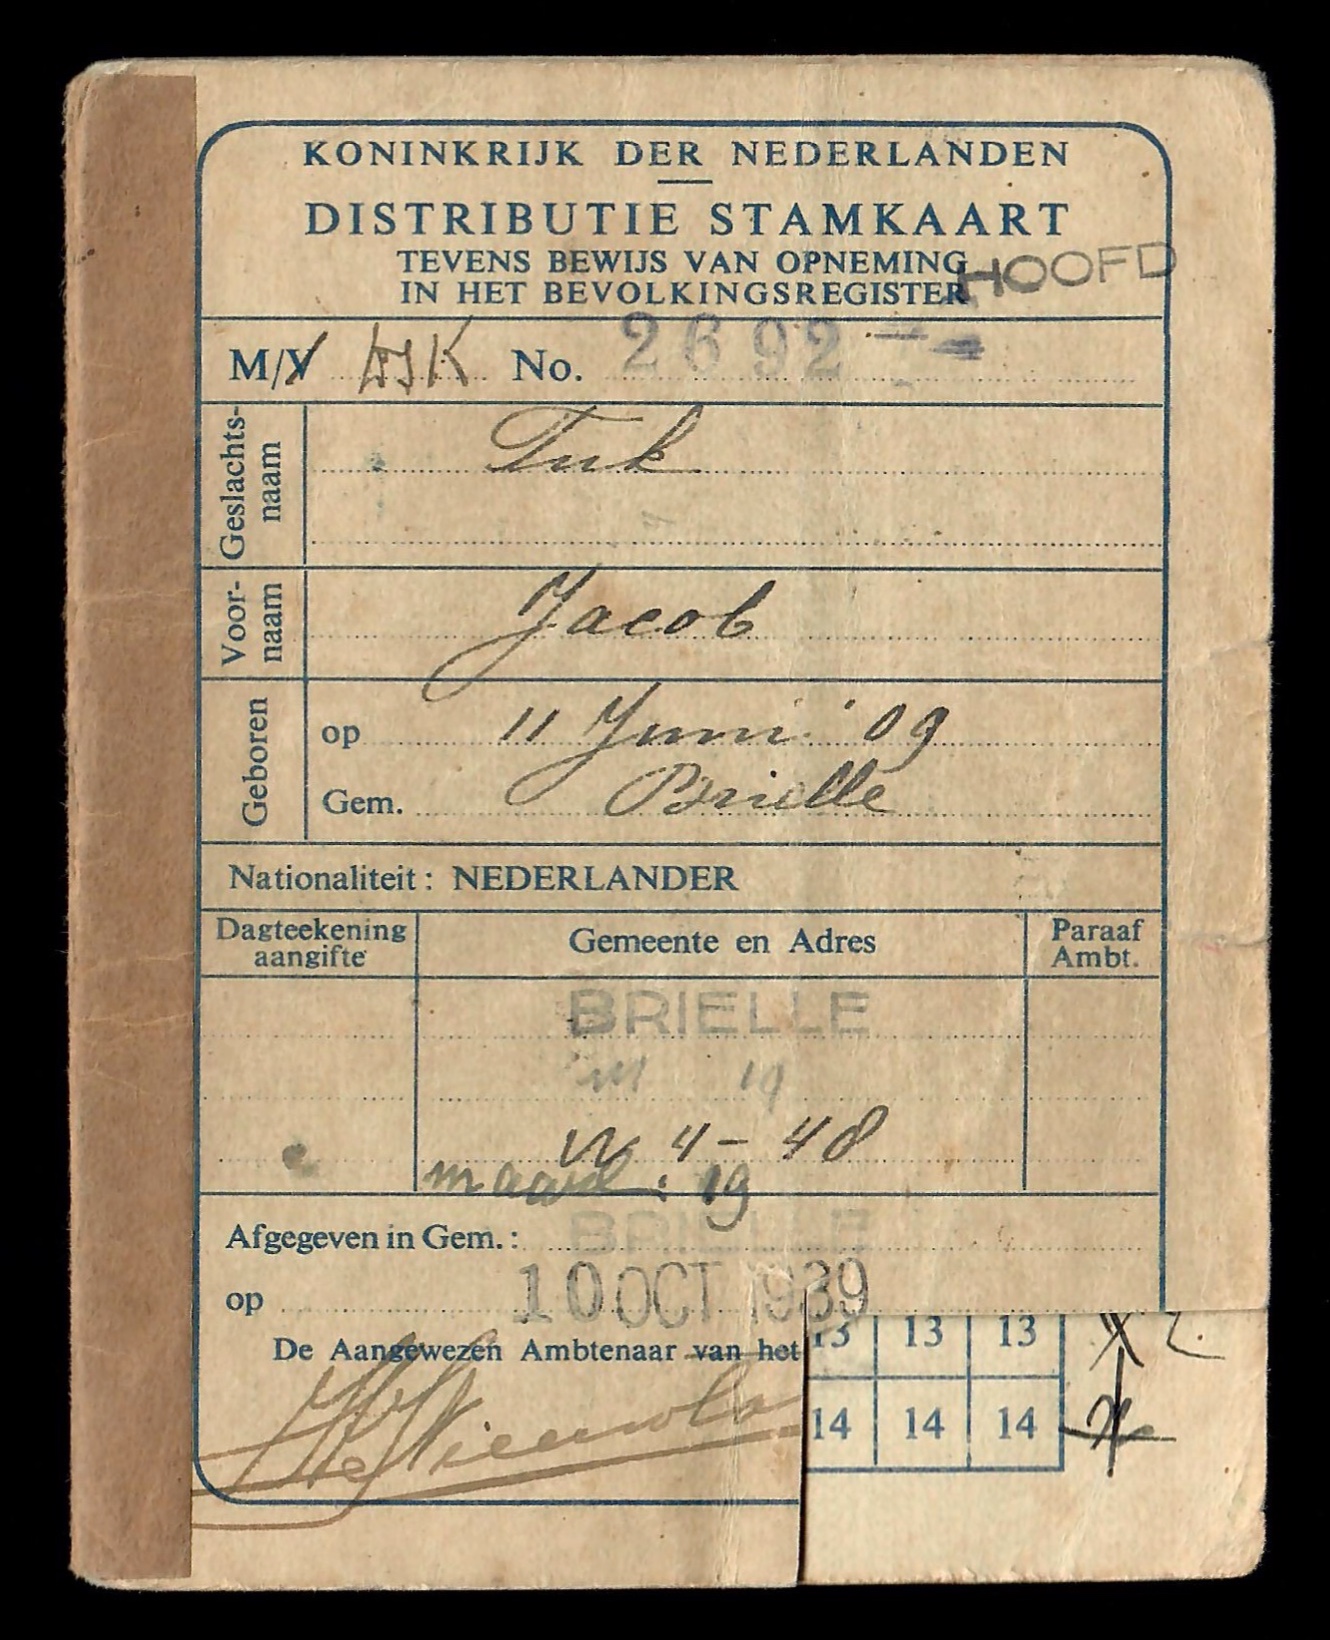 KONINKRIJK DER NEDERLANDEN
DISTRIBUTIE STAMKAART
TEVENS BEWIJS VAN OPNEMING
IN HET BEVOLKINGSREGISTER
HOOFD
M/V No. 2692
Geslachts-
naam
Tuk
Voor-
naam
Jacob
Geboren
op 11 Juni '09
Gem. Brielle
Nationaliteit: NEDERLANDER
Dagteekening
aangifte
Gemeente en Adres
Paraaf
Ambt.
BRIELLE
19
W 4-48
19
Afgegeven in Gem.: BRIELLE
op 10 OCT 1939
De Aangewezen Ambtenaar van het
13 13 13
14 14 14